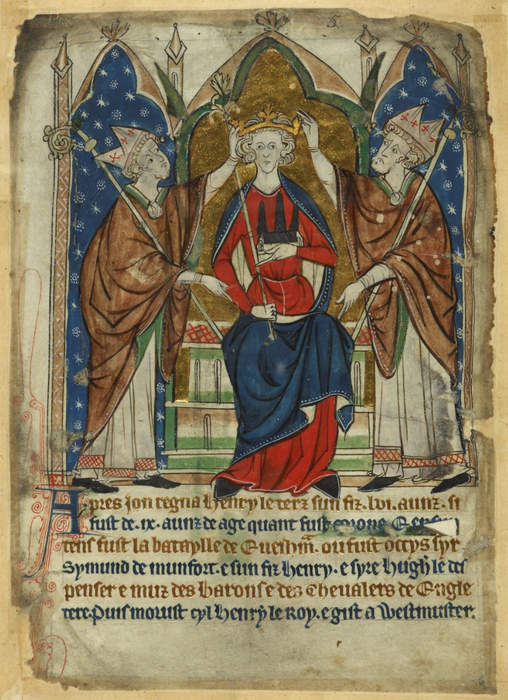 Apres Jon regna Henry le terz sun fiz .lvi. aunz. si
fust de .ix. aunz de age quant fust
tens fust la bataylle de Euesham. ou fust occys syr
Symund de munfort. e sun fiz Henry. e syre Hugh le des
penser e muz des barons e des Chevalers de Engle
tere. Puis morust cyl Henry le Roy. e gist a Westmuster.